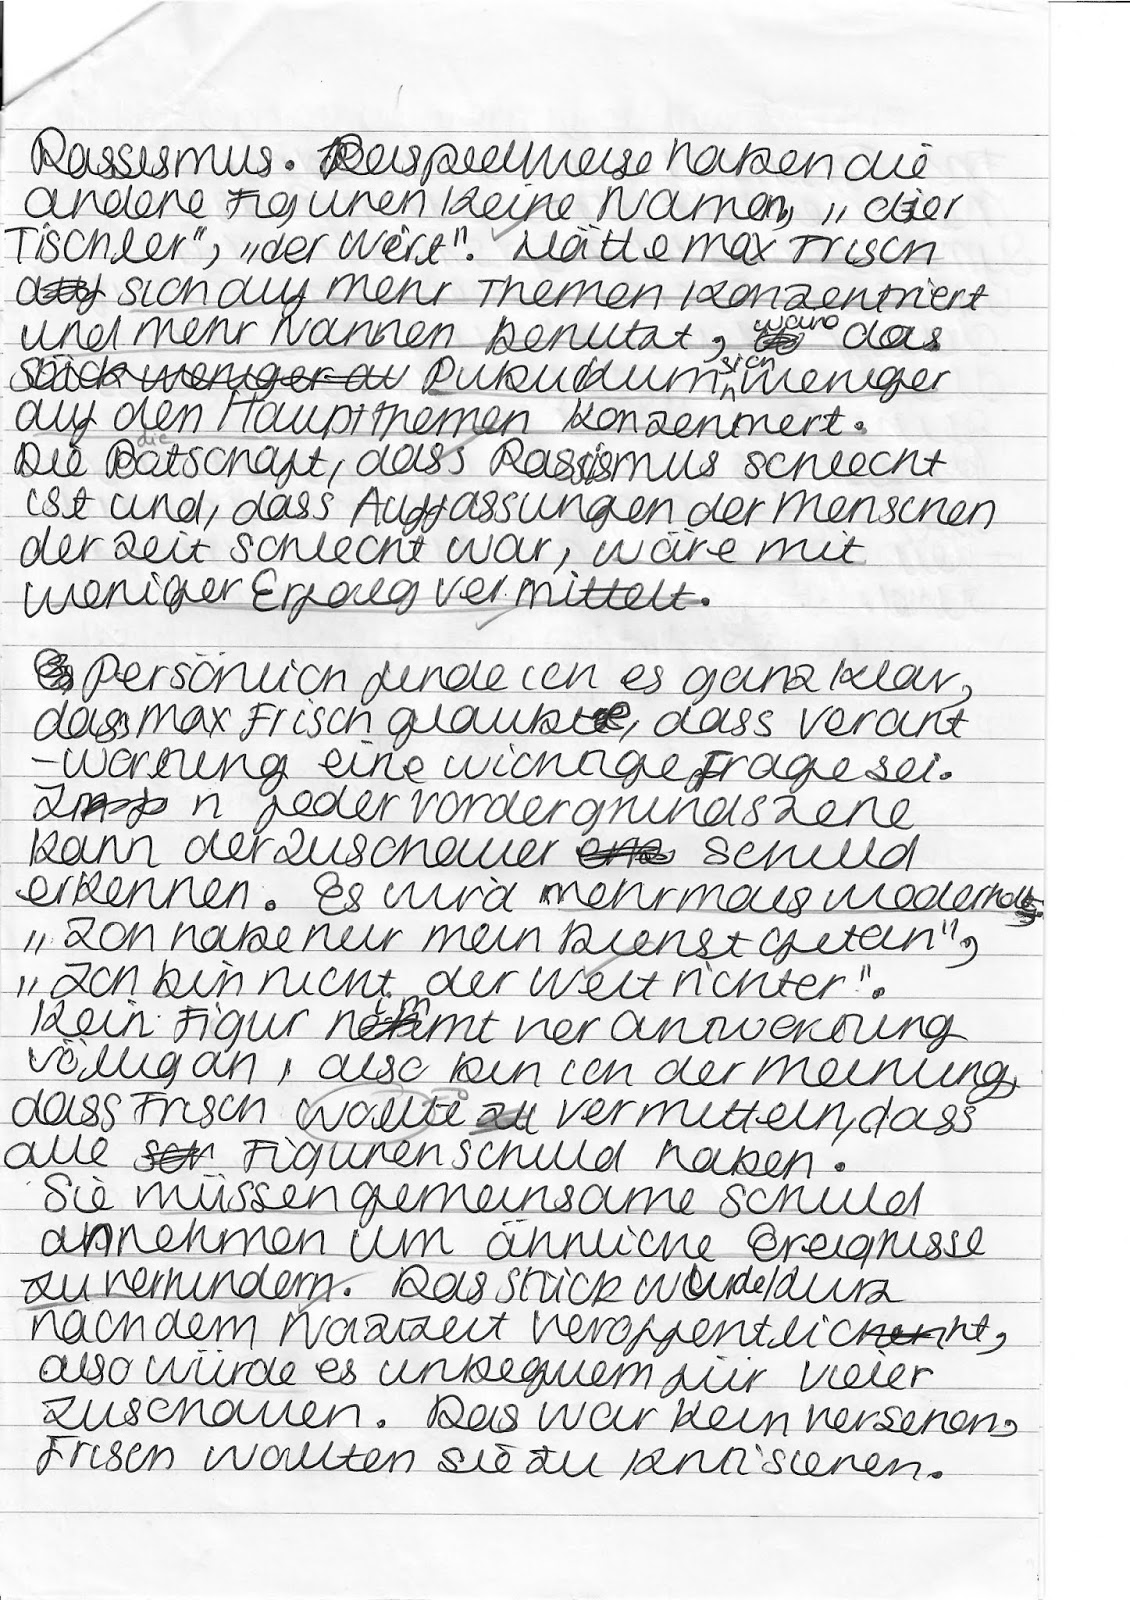 Rassismus. Beispielweise haben die
andere Figuren keine Namen, „der
Tischler", „der Wirt". Hätte Max Frisch
sich auf mehr Themen konzentriert
und mehr Nannen benutzt, das
Pukudum sich weniger
auf den Hauptthemen konzentriert.
Die Botschaft, dass Rassismus schlecht
ist und, dass Auffassungen der Menschen
der Zeit schlecht war, wäre mit
weniger Erfolg vermittelt.
Persönlich finde ich es ganz klar,
dass Max Frisch glaubte, dass Verant
-wortung eine wichtige Frage sei.
In jeder Vordergrundszene
kann der Zuschauer Schuld
erkennen. Es wird mehrmals wiederholt
„Ich habe nur mein Dienst getan",
„Ich bin nicht der Weltrichter".
Kein Figur nimmt Verantwortung
völlig an, also bin ich der Meinung,
dass Frisch wollte vermitteln, dass
alle Figuren Schuld haben.
Sie müssen gemeinsame Schuld
annehmen um ähnliche Ereignisse
zu verhindern. Das Stück wurde kurz
nach dem Nazizeit veröffentlicht,
also würde es unbequem für vieler
Zuschauen. Das war kein Versehen,
Frisch wollten sie zu kritisieren.